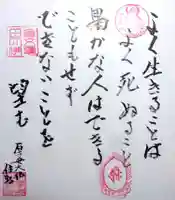 よく生きることは
よく死ぬること
愚かな人はできる
こともせず
できないことを
望む